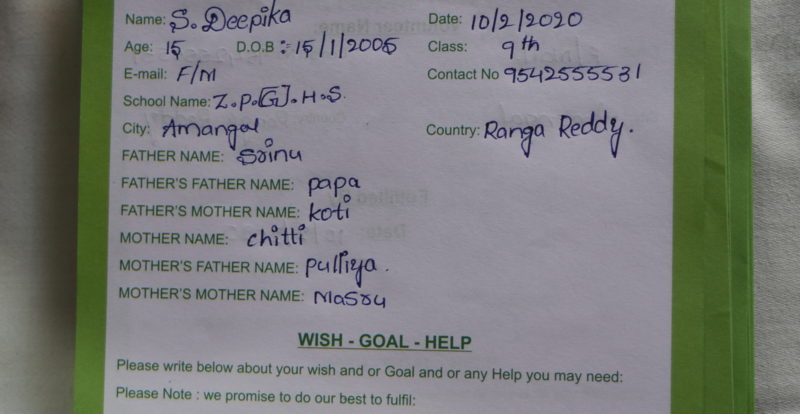 Name: S. Deepika Date: 10/2/2020
Age: 15 D.O.B : 15/1/2005 Class: 9th
E-mail: F/M Contact No 9542555531
School Name: Z.P.[G].H.S.
City: Amangal Country: Ranga Reddy.
FATHER NAME: Srinu
FATHER'S FATHER NAME: papa
FATHER'S MOTHER NAME: koti
MOTHER NAME: chitti
MOTHER'S FATHER NAME: pulliya.
MOTHER'S MOTHER NAME: Masru
WISH - GOAL - HELP
Please write below about your wish and or Goal and or any Help you may need:
Please Note : we promise to do our best to fulfil: